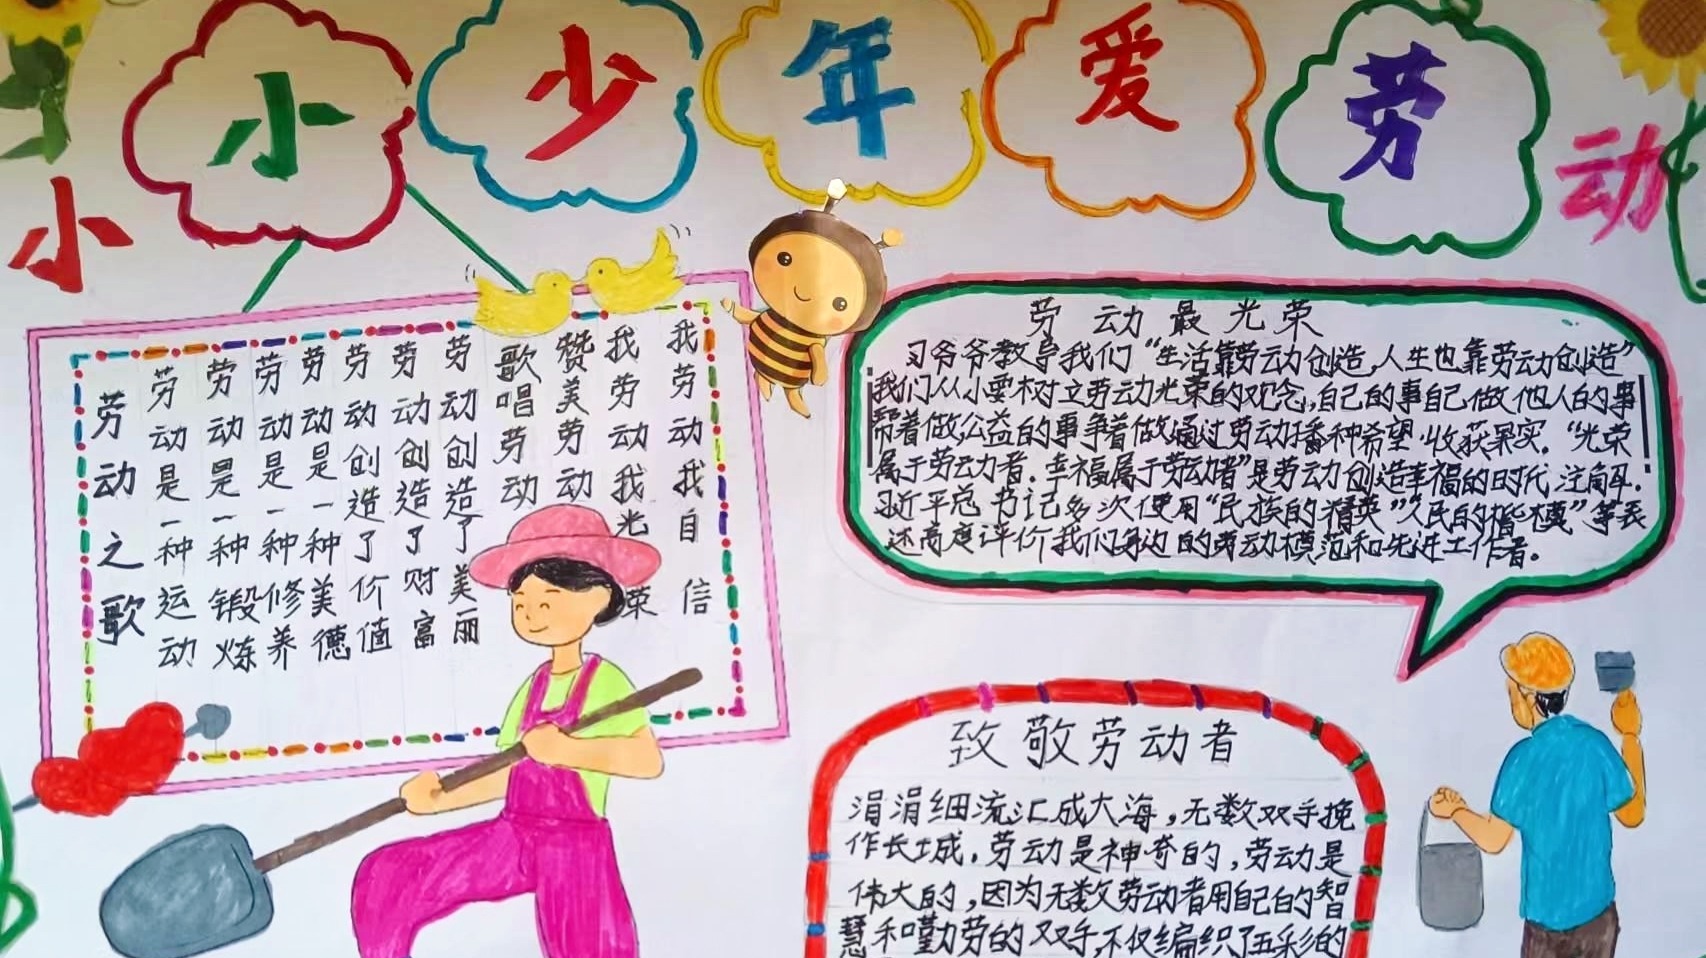 小小少年爱劳动
劳动之歌
劳动是一种运动
劳动是一种锻炼
劳动是一种修养
劳动是一种美德
劳动创造了价值
劳动创造了财富
劳动创造了美丽
歌唱劳动
赞美劳动
我劳动我光荣
我劳动我自信
劳动最光荣
习爷爷教导我们“生活靠劳动创造,人生也靠劳动创造”
我们从小要树立劳动光荣的观念,自己的事自己做,他人的事
帮着做,公益的事争着做,通过劳动播种希望.收获果实.“光荣
属于劳动者.幸福属于劳动者”是劳动创造幸福的时代注解.
习近平总书记多次使用“民族的精英”“人民的楷模”等表
述高度评价我们身边的劳动模范和先进工作者。
致敬劳动者
涓涓细流汇成大海,无数双手挽
作长城.劳动是神奇的,劳动是
伟大的,因为无数劳动者用自己的智
慧和勤劳的双手,不仅编织了五彩的